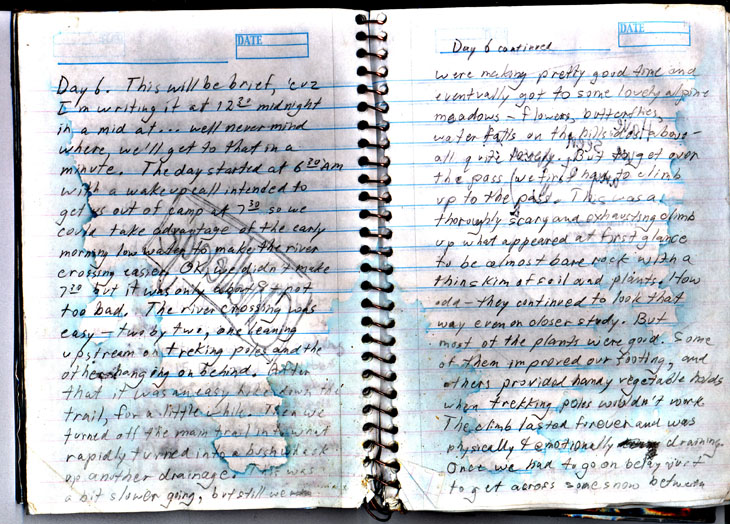 DATE
Day 6. This will be brief, 'cuz
I'm writing it at 12 30 midnight
in a mid at... well never mind
where, we'll get to that in a
minute. The day started at 6 20 AM
with a wakeup call intended to
get us out of camp at 7 30 so we
could take advantage of the early
morning low water to make the river
crossing easier. OK, we didn't make
7 30 but it was only about 8 + not
too bad. The river crossing was
easy - two by two, one leaning
upstream on treking poles and the
other hanging on behind. After
that it was an easy hike down the
trail, for a little while. Then we
turned off the main trail into what
rapidly turned into a bushwhack
up another drainage. That was
a bit slower going, but still we
DATE
Day 6 continued
were making pretty good time and
eventually got to some lovely alpine
meadows - flowers, butterflies,
water falls on the hillsides above -
all quite lovely. But to get over
the pass we first had to climb
up to the pass. This was a
thoroughly scary and exhausting climb
up what appeared at first glance
to be almost bare rock with a
thin skim of soil and plants. How
odd - they continued to look that
way even on closer study. But
most of the plants were good. Some
of them improved our footing, and
others provided handy vegetable holds
when trekking poles wouldn't work.
The climb lasted forever and was
physically & emotionally draining.
Once we had to go on belay just
to get across some snow between